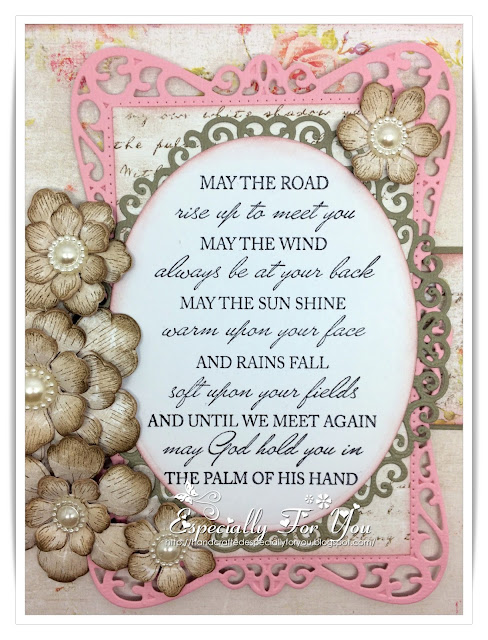 my own white shadow
the pal
Wit
MAY THE ROAD
rise up to meet you
MAY THE WIND
always be at your back
MAY THE SUN SHINE
warm upon your face
AND RAINS FALL
soft upon your fields
AND UNTIL WE MEET AGAIN
may God hold you in
THE PALM OF HIS HAND
Especially For You
http://handcraftedespeciallyforyou.blogspot.com/